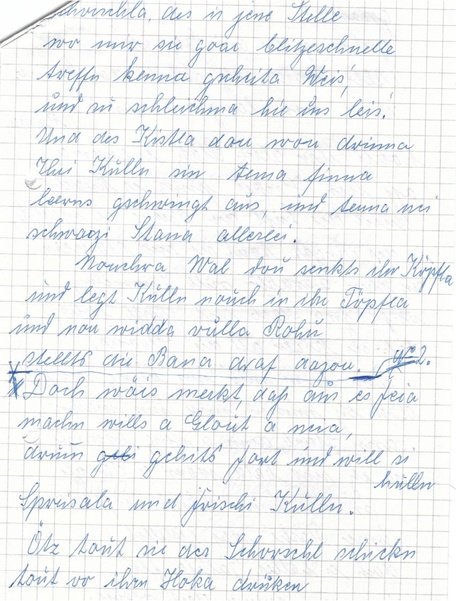 Schorschla, des is jene Stelle
wo mir sie goar blitzeschnelle
treffn kenna geheita Weis',
und su schleichma hie uns leis'.
Und des Kistla dou wou drinna
Ihri Külln sin tenna
leerns gschwingt aus, und tenna nei
schwazi Stana allerlei.
Nouchra Wal dou senkts ihr Köpfla
und legt Külln nouch in ihr Töpfla
und nou widda vulla Rouh
stellts die Bana draf dazou. 2.
Doch wöis merkt, daß aus es Feia
machn wills a Glout a neia,
drum gehts fort und will si
hulln
Spreisala und frischi Külln.
Ötz tout sie der Schorschl schickn
tout vo ihrn Hoka drückn